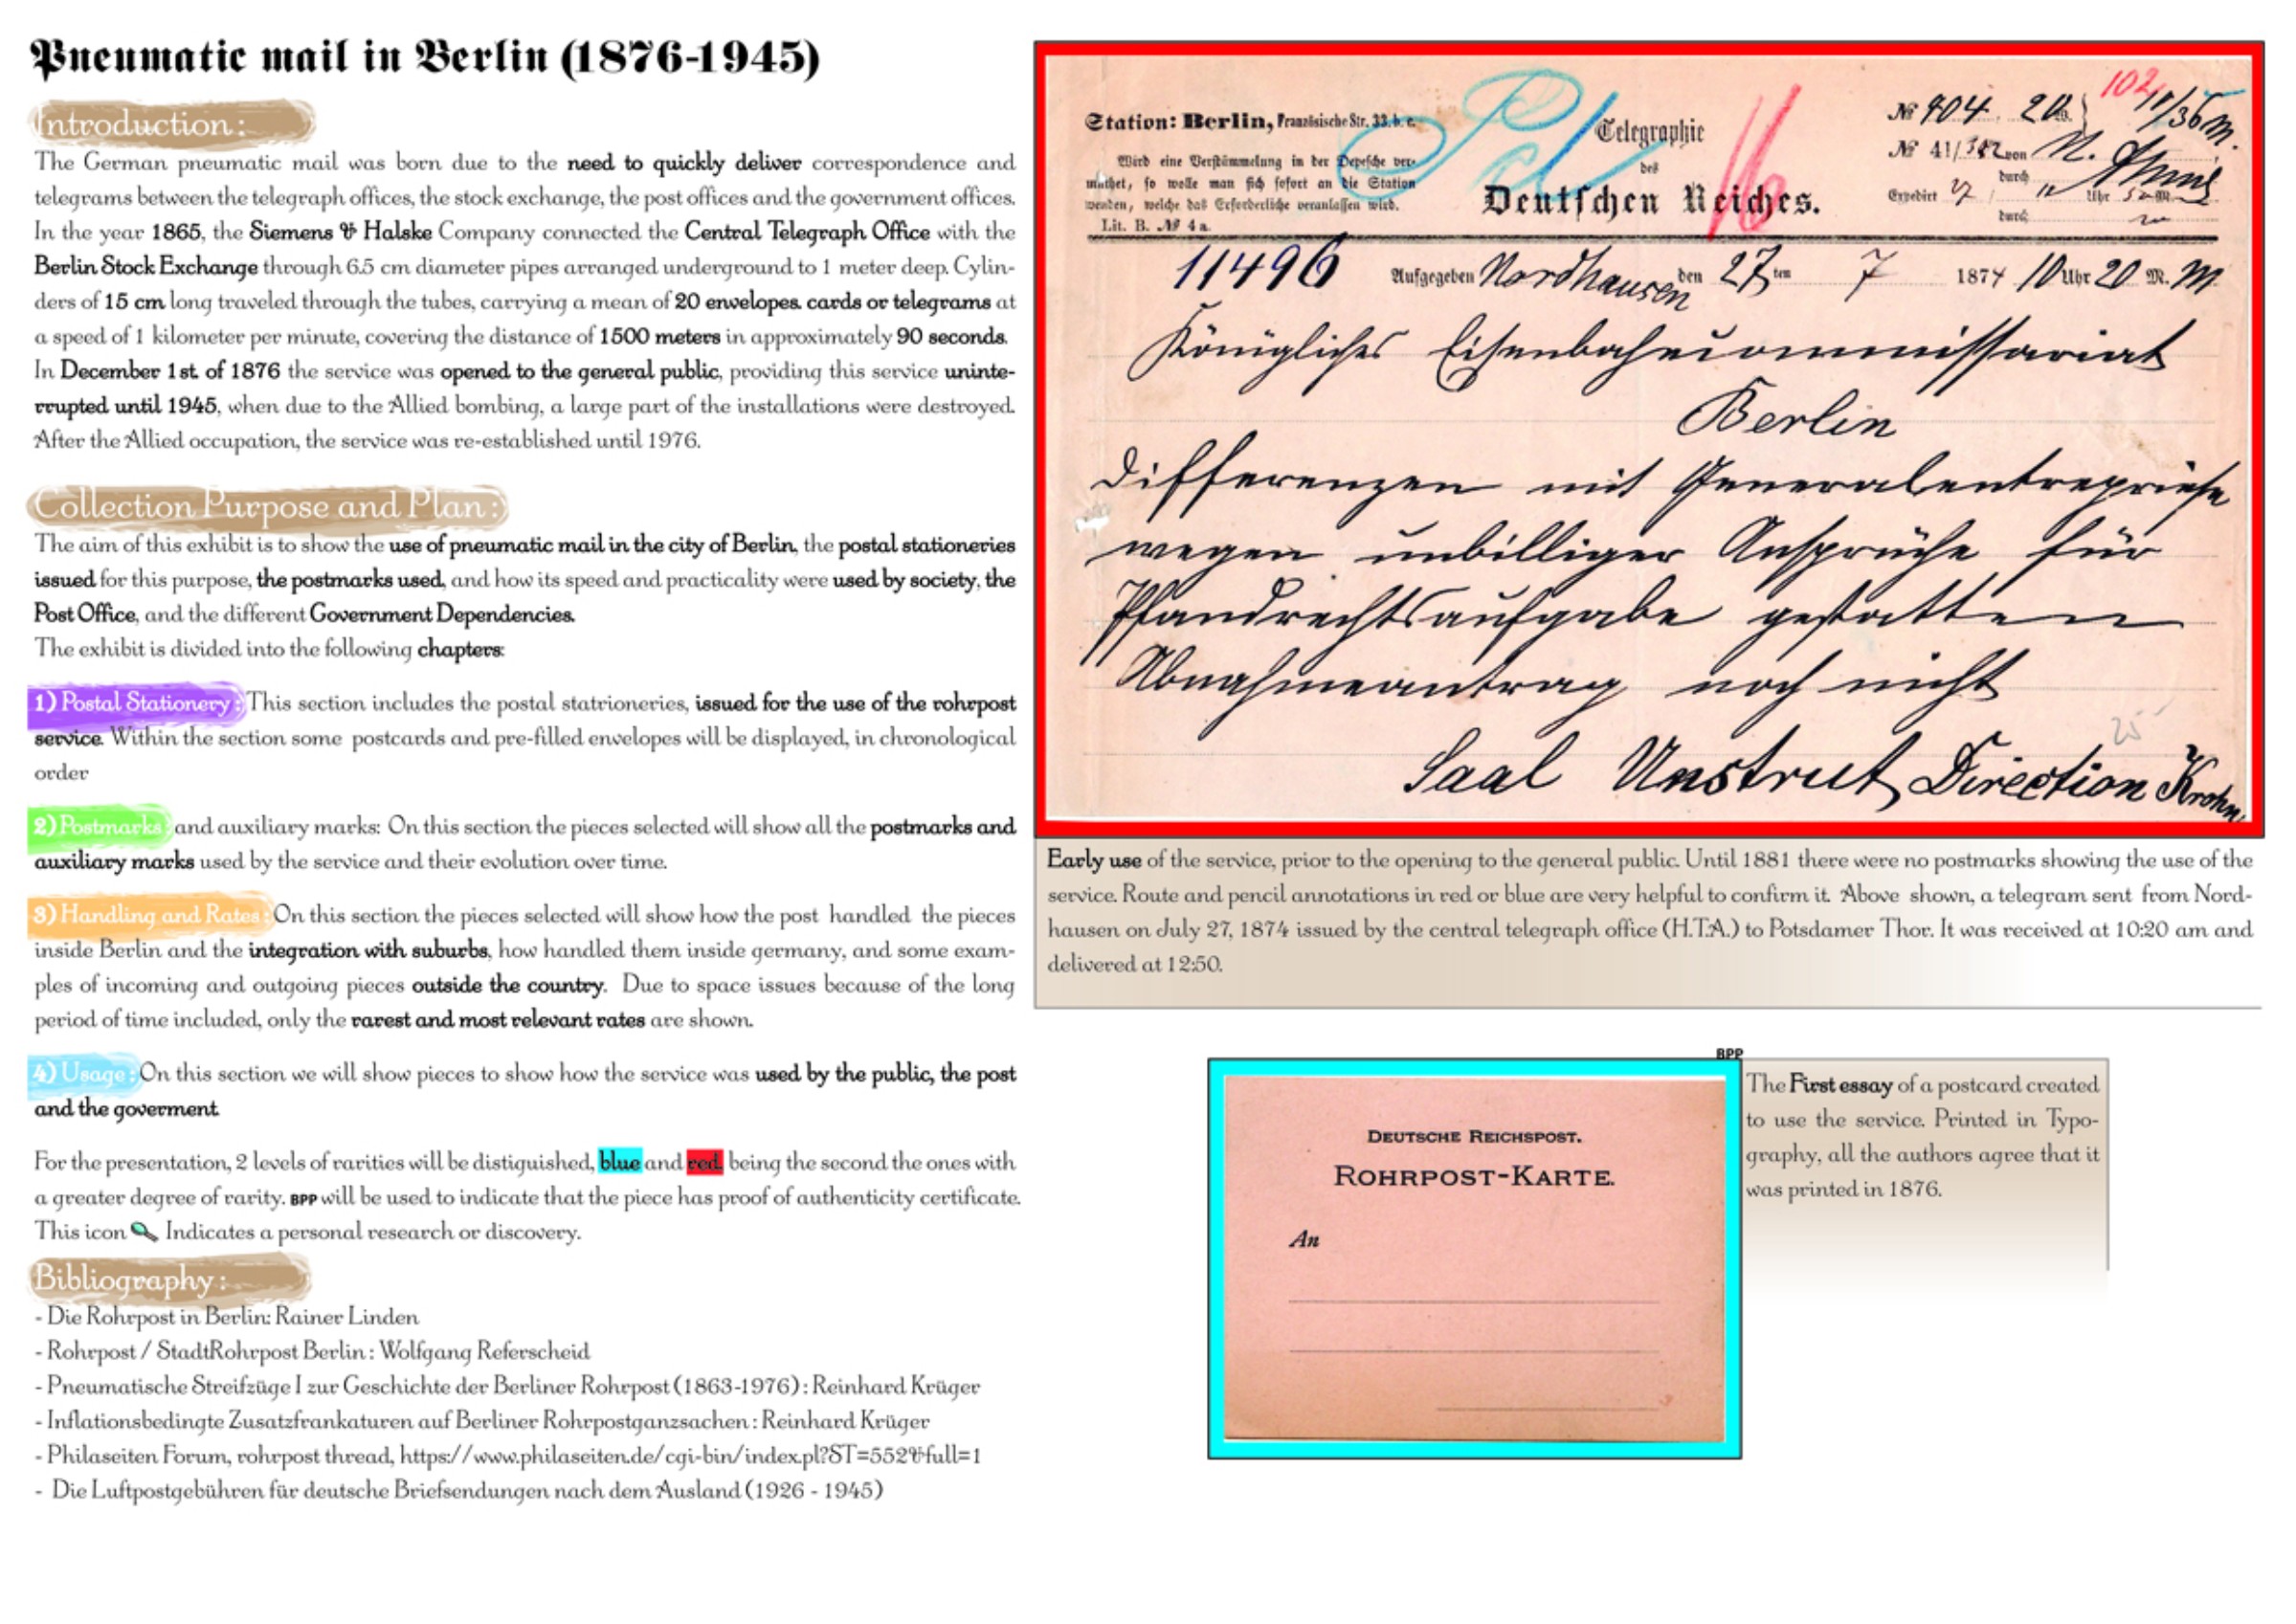 Pneumatic mail in Berlin (1876-1945)
Introduction:
The German pneumatic mail was born due to the need to quickly deliver correspondence and
telegrams between the telegraph offices, the stock exchange, the post offices and the government offices.
In the year 1865, the Siemens & Halske Company connected the Central Telegraph Office with the
Berlin Stock Exchange through 6.5 cm diameter pipes arranged underground to 1 meter deep. Cylin-
ders of 15 cm long traveled through the tubes, carrying a mean of 20 envelopes. cards or telegrams at
a speed of 1 kilometer per minute, covering the distance of 1500 meters in approximately 90 seconds.
In December 1st. of 1876 the service was opened to the general public, providing this service uninte-
rrupted until 1945, when due to the Allied bombing, a large part of the installations were destroyed.
After the Allied occupation, the service was re-established until 1976.
Collection Purpose and Plan:
The aim of this exhibit is to show the use of pneumatic mail in the city of Berlin, the postal stationeries
issued for this purpose, the postmarks used, and how its speed and practicality were used by society, the
Post Office, and the different Government Dependencies.
The exhibit is divided into the following chapters:
1) Postal Stationery: This section includes the postal statrioneries, issued for the use of the rohrpost
service. Within the section some postcards and pre-filled envelopes will be displayed, in chronological
order
2) Postmarks and auxiliary marks: On this section the pieces selected will show all the postmarks and
auxiliary marks used by the service and their evolution over time.
3) Handling and Rates: On this section the pieces selected will show how the post handled the pieces
inside Berlin and the integration with suburbs, how handled them inside germany, and some exam-
ples of incoming and outgoing pieces outside the country. Due to space issues because of the long
period of time included, only the rarest and most relevant rates are shown.
4) Usage: On this section we will show pieces to show how the service was used by the public, the post
and the goverment.
For the presentation, 2 levels of rarities will be distiguished, blue and red. being the second the ones with
a greater degree of rarity. BPP will be used to indicate that the piece has proof of authenticity certificate.
This icon Indicates a personal research or discovery.
Bibliography:
- Die Rohrpost in Berlin: Rainer Linden
- Rohrpost / StadtRohrpost Berlin : Wolfgang Referscheid
- Pneumatische Streifzüge I zur Geschichte der Berliner Rohrpost (1863-1976) : Reinhard Krüger
- Inflationsbedingte Zusatzfrankaturen auf Berliner Rohrpostganzsachen : Reinhard Krüger
- Philaseiten Forum, rohrpost thread, https://www.philaseiten.de/cgi-bin/index.pl?ST=552&full=1
- Die Luftpostgebühren für deutsche Briefsendungen nach dem Ausland (1926 - 1945)
Station: Berlin, Französische Str. 33. b. c.
Wird eine Verstümmelung in der Depesche ver-
muthet, so wolle man sich sofort an die Station
wenden, welche das Erforderliche veranlassen wird.
Lit. B. № 4 a.
Telegraphie
des
Deutschen Reiches.
16
102
№ 404. 20
11/36 M.
№ 41/ von
durch
Expedirt 27 / 11 Uhr M.
durch
11496 Aufgegeben Nordhausen den 27 ten 7 1874 10 Uhr 20 M. M
Königliches Eisenbahncommissariat
Berlin
Differenzen mit Generalentrepriese
wegen unbilliger Ansprüche für
Pfandrechtsaufgabe gestatten
Abnahmeantrag noch nicht
25-
Saal Unstrut Direction Krohn
Early use of the service, prior to the opening to the general public. Until 1881 there were no postmarks showing the use of the
service. Route and pencil annotations in red or blue are very helpful to confirm it. Above shown, a telegram sent from Nord-
hausen on July 27, 1874 issued by the central telegraph office (H.T.A.) to Potsdamer Thor. It was received at 10:20 am and
delivered at 12:50.
BPP
DEUTSCHE REICHSPOST.
ROHRPOST-KARTE.
An
The First essay of a postcard created
to use the service. Printed in Typo-
graphy, all the authors agree that it
was printed in 1876.